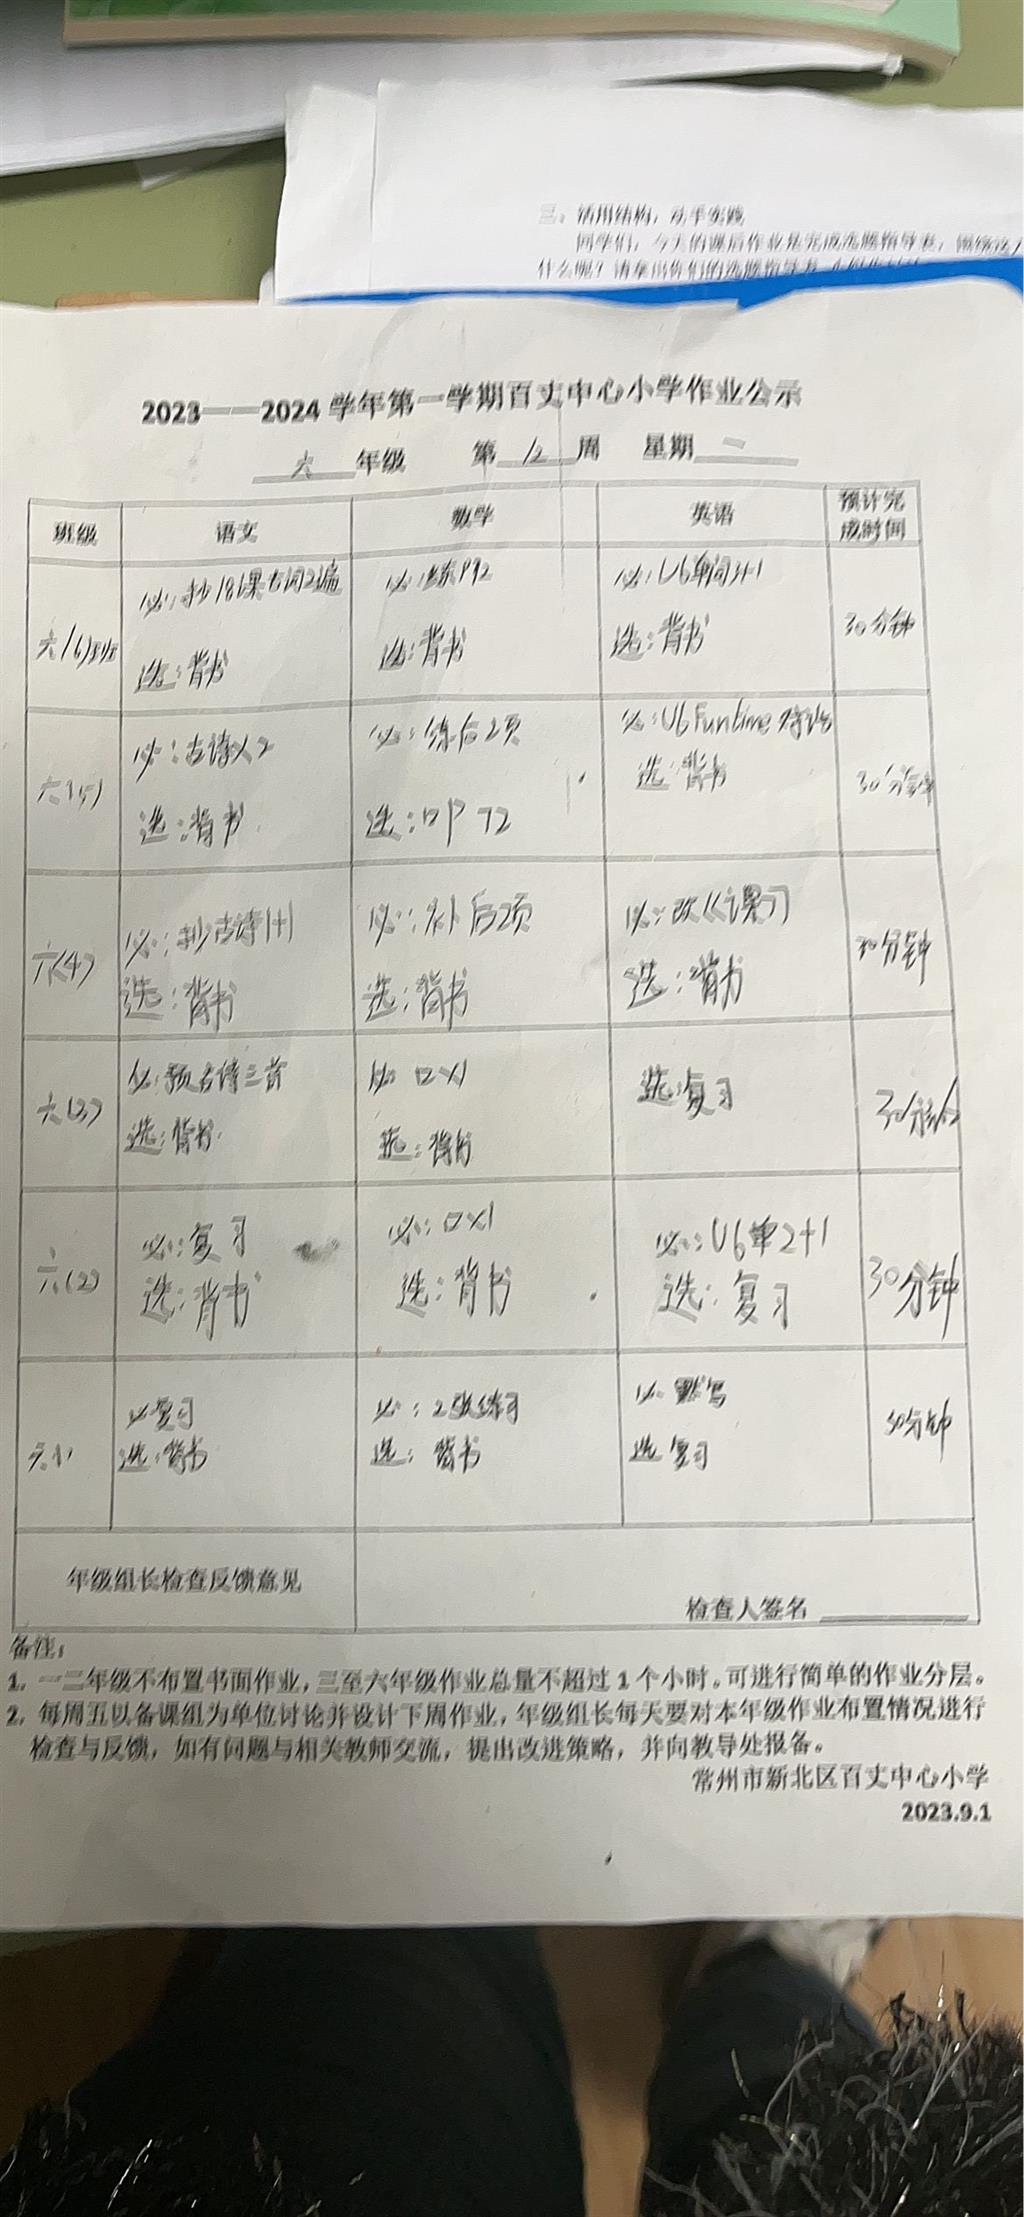 三、活用结构，动手实践
同学们，今天的课后作业是完成选题指导表，围绕这
什么呢？请拿出你们的选题指导表
2023——2024 学年第一学期百丈中心小学作业公示
六 年级 第 12 周 星期 二
班级 语文 数学 英语 预计完成时间
六(6)班 必：抄18课古词2遍 必：练P92 必：U6单词3+1 30分钟
选：背书 选：背书 选：背书
六(5) 必：古诗×2 必：练后2页 必：U6 Funtime 30分钟
选：背书 选：口P72 选：背书
六(4) 必：抄古诗1+1 必：补后2页 必：改《课》 30分钟
选：背书 选：背书 选：背书
六(3) 必：预古诗三首 必：口×1 选：复习 30分钟
选：背书 选：背书
六(2) 必：复习 必：口×1 必：U6单2+1 30分钟
选：背书 选：背书 选：复习
六(1) 必复习 必：2张练习 必：默写 30分钟
选：背书 选：背书 选 复习
年级组长检查反馈意见 检查人签名
备注：
1. 一二年级不布置书面作业，三至六年级作业总量不超过 1 个小时。可进行简单的作业分层。
2. 每周五以备课组为单位讨论并设计下周作业，年级组长每天要对本年级作业布置情况进行
检查与反馈，如有问题与相关教师交流，提出改进策略，并向教导处报备。
常州市新北区百丈中心小学
2023.9.1